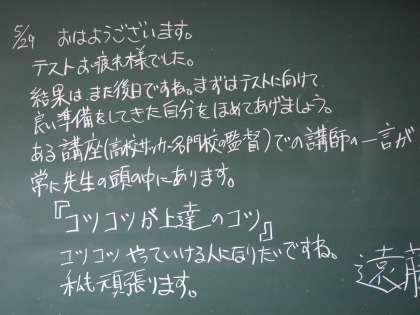 5/29 おはようございます。
テストお疲れ様でした。
結果はまた後日ですね。まずはテストに向けて
良い準備をしてきた自分をほめてあげましょう。
ある講座(高校サッカー名門校の監督)での講師の一言が
常に先生の頭の中にあります。
『コツコツが上達のコツ』
コツコツやっていける人になりたいですね。
私も頑張ります。
遠藤